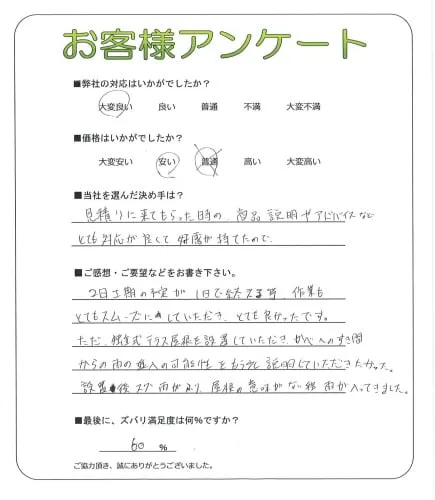 お客様アンケート
■弊社の対応はいかがでしたか？
大変良い 良い 普通 不満 大変不満
■価格はいかがでしたか？
大変安い 安い 普通 高い 大変高い
■当社を選んだ決め手は？
見積りに来てもらった時の、商品説明やアドバイスなど
とても対応が良くて好感が持てたので、
■ご感想・ご要望などをお書き下さい。
2日工期の予定が1日で終える等、作業も
とてもスムーズにしていただき、とても良かったです。
ただ、独立式テラス屋根を設置していただき、かべへのすき間
からの雨の進入の可能性をもう少し説明していただきたかった。
設置後スグ雨がふり、屋根の意味がない程雨が入ってきました。
■最後に、ズバリ満足度は何％ですか？
60 ％
ご協力頂き、誠にありがとうございました。